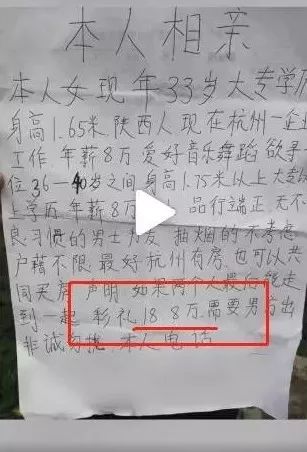 本人相亲
本人女现年33岁大专学历
身高1.65米陕西人现在杭州一企
工作 年薪8万 爱好音乐舞蹈 欲寻一
位36—40岁之间 身高1.75米以上 大专以
上学历 年薪8万 上 品行端正 无不
良习惯的男士为友 抽烟的不考虑
户藉不限 最好杭州有房 也可以共
同买房 声明 如果两个人最后能走
到一起 彩礼18.8万.需要男方出
非诚勿扰 本人电话